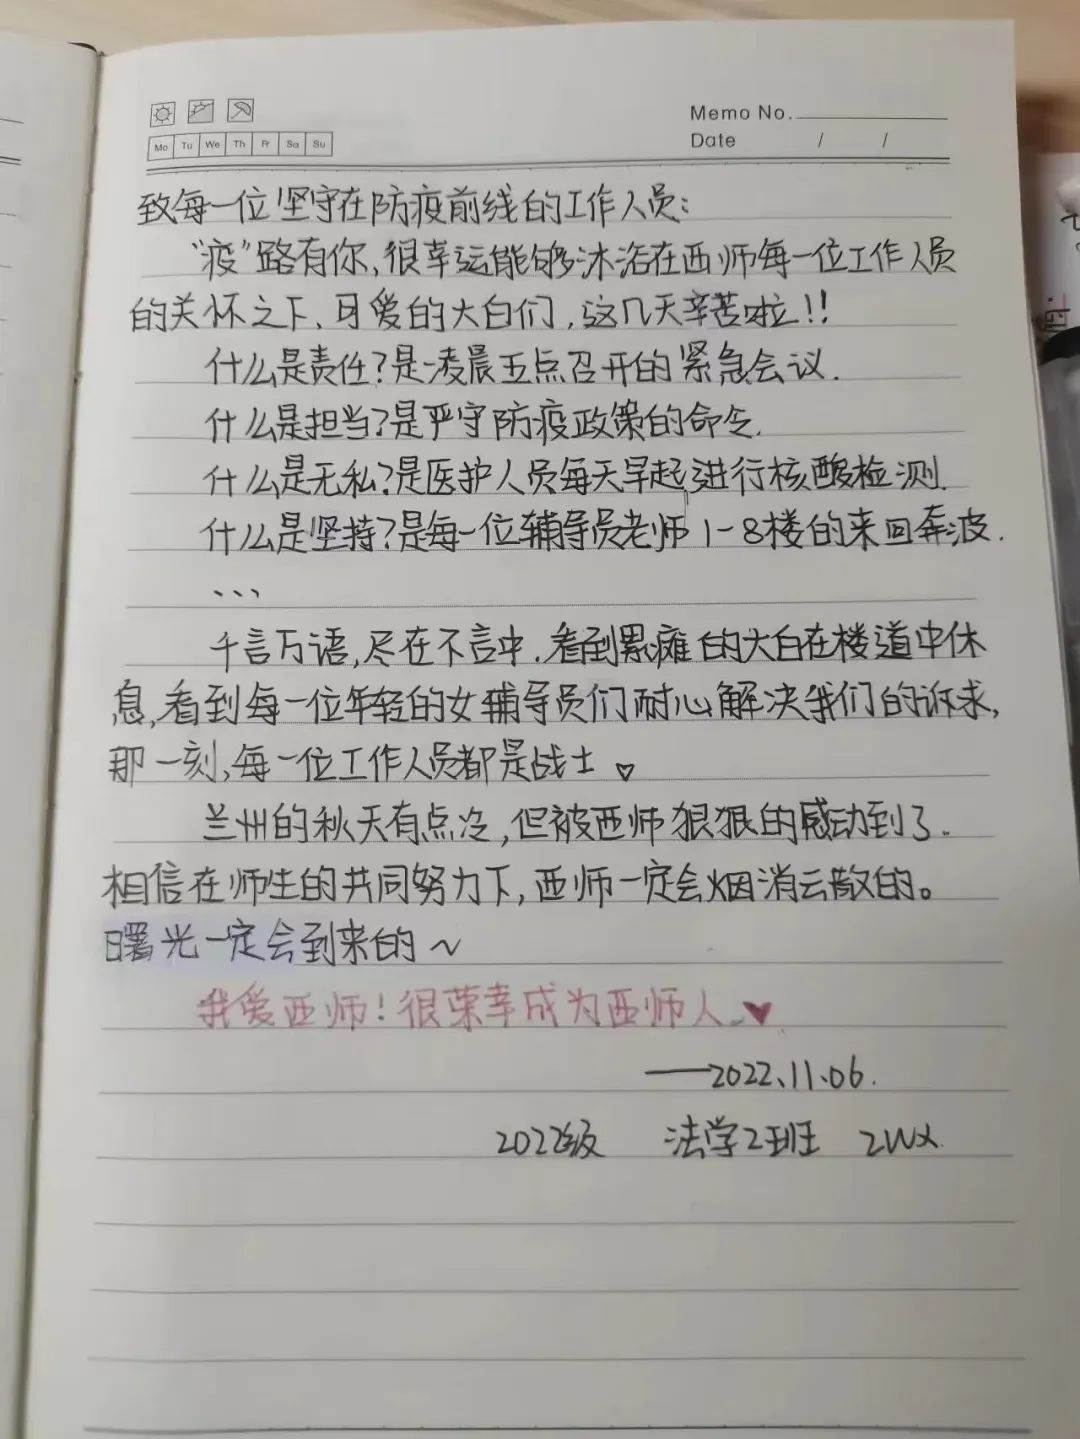 Memo No.
Mo Tu We Th Fr Sa Su
Date / /
致每一位坚守在防疫前线的工作人员:
“疫”路有你,很幸运能够沐浴在西师每一位工作人员
的关怀之下、可爱的大白们,这几天辛苦啦!!
什么是责任?是凌晨五点召开的紧急会议.
什么是担当?是严守防疫政策的命令.
什么是无私?是医护人员每天早起进行核酸检测.
什么是坚持?是每一位辅导员老师1-8楼的来回奔波.
、、、
千言万语,尽在不言中.看到累瘫的大白在楼道中休
息,看到每一位年轻的女辅导员们耐心解决我们的诉求,
那一刻,每一位工作人员都是战士♡
兰州的秋天有点冷,但被西师狠狠的感动到了.
相信在师生的共同努力下,西师一定会烟消云散的。
曙光一定会到来的~
我爱西师!很荣幸成为西师人.♥
——2022.11.06.
2022级 法学2班 ZWX.